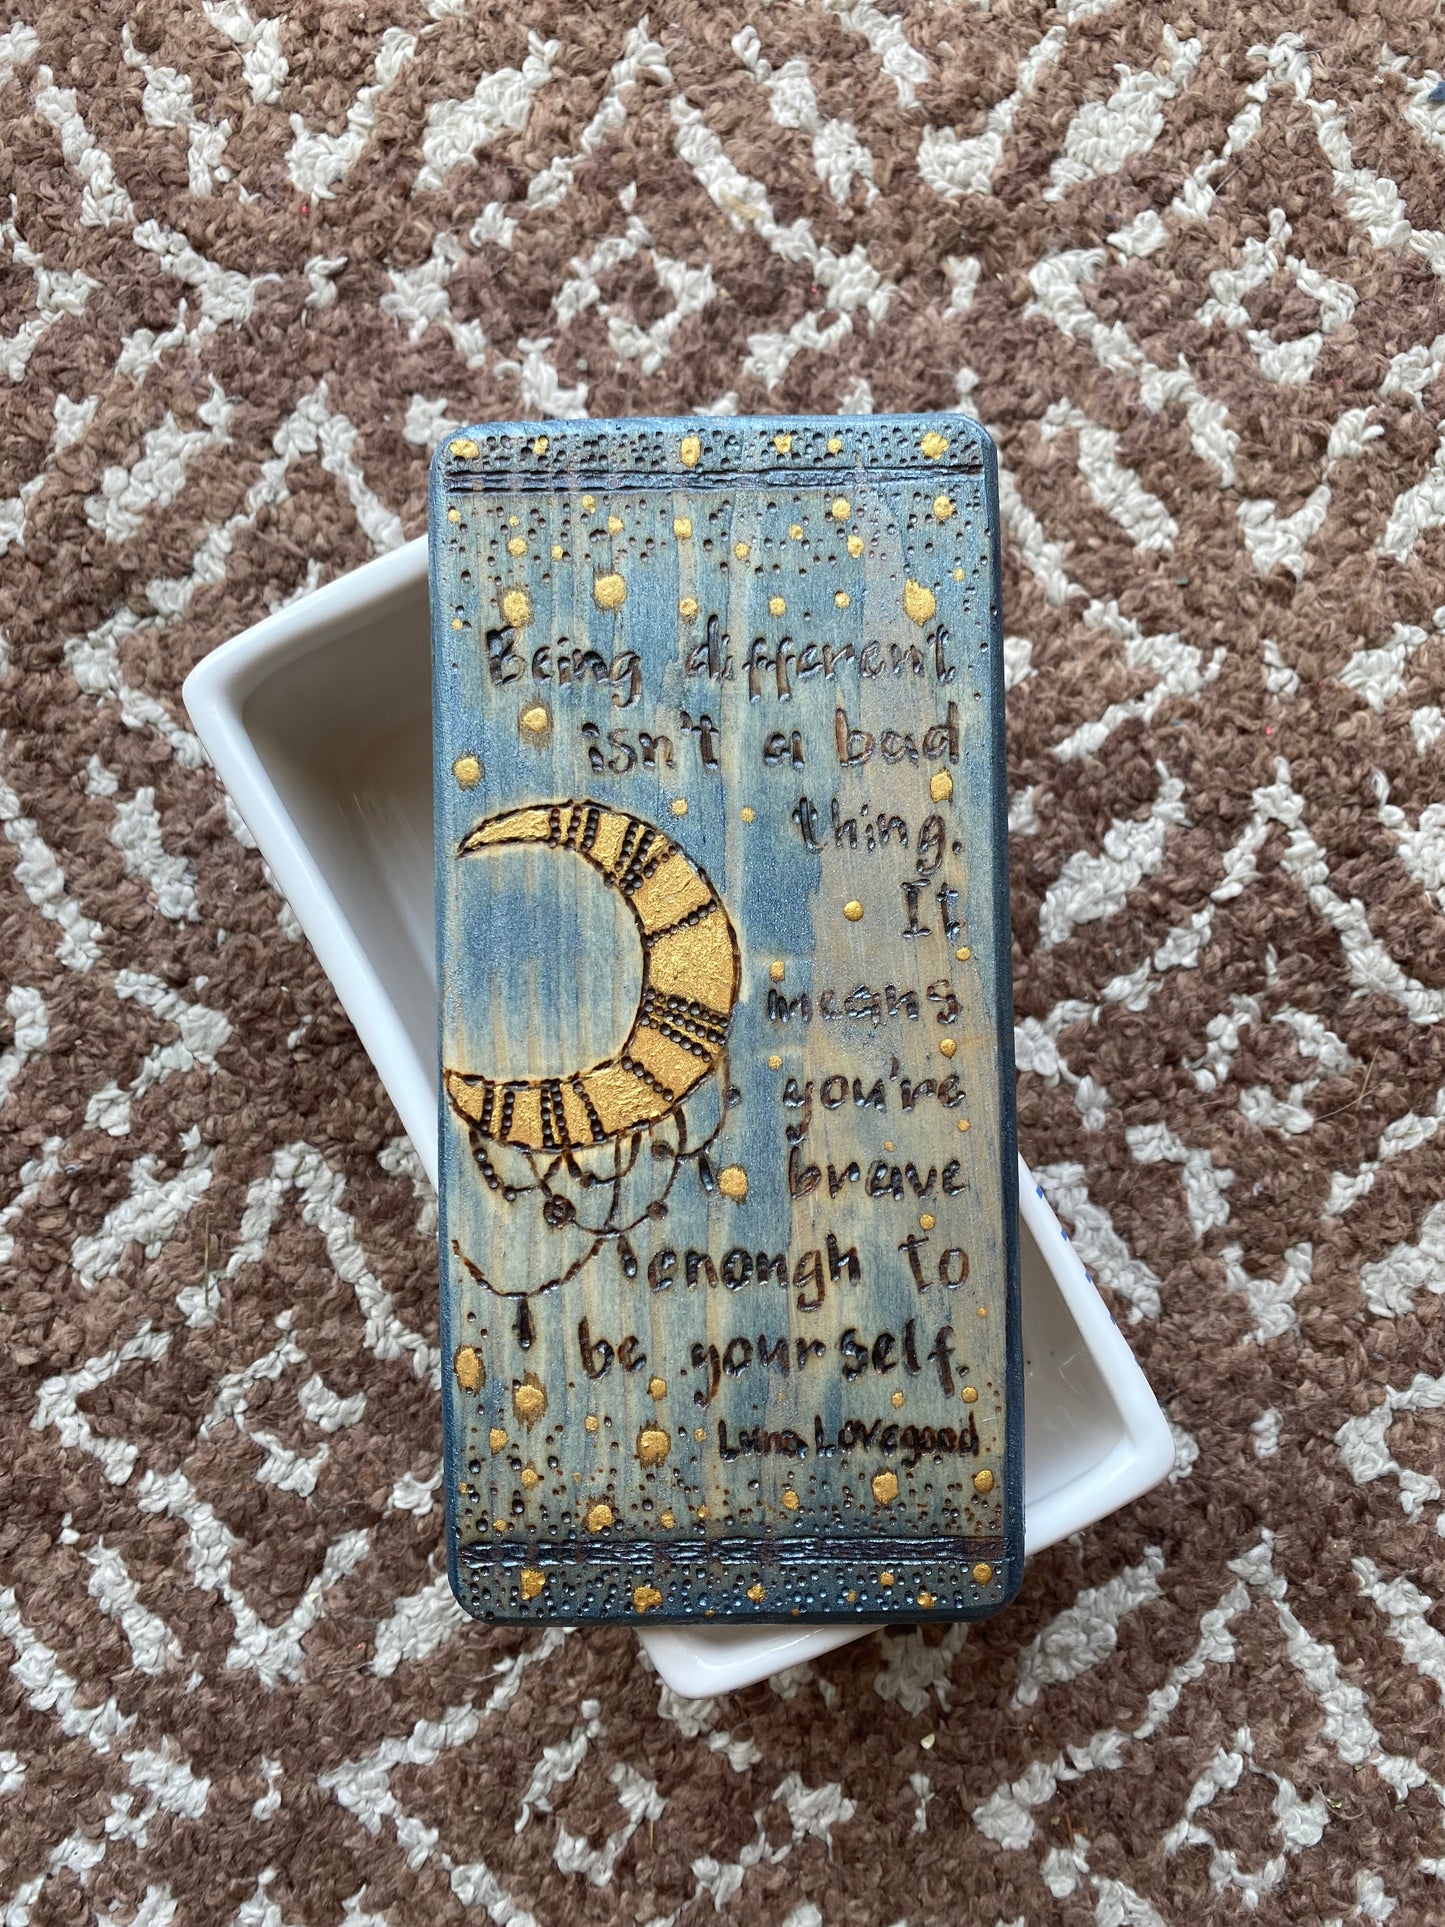 Being different
isn't a bad
thing.
It
means
you're
brave
enough to
be yourself.
Luna Lovegood